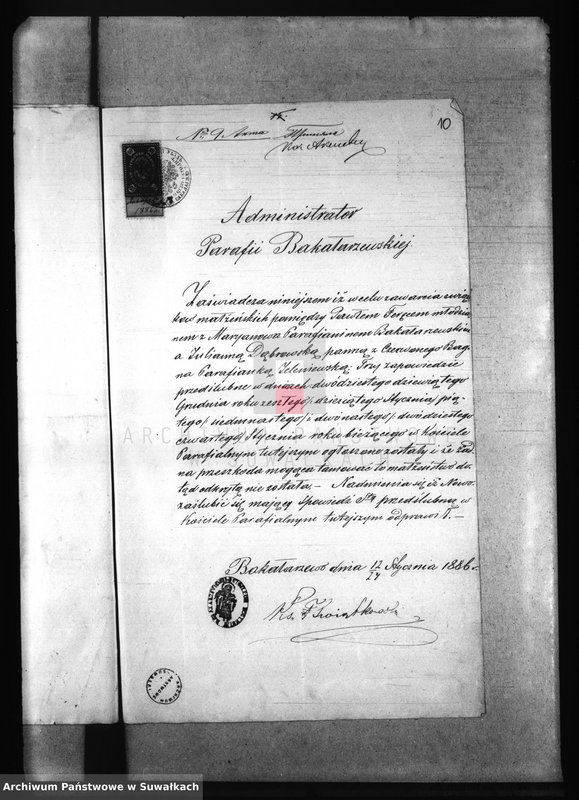 10
No 9
Administrator
Parafii Bakałarzewskiej.
Zaświadcza niniejszem iż w celu zawarcia związ-
ków małżeńskich pomiędzy Pawłem młodzia-
nem z Maryanowa Parafianinem Bakałarzewskim
a Julianną Dąbrowską panną z Czerwonego Bag-
na Parafianką Jeleniewską; Trzy zapowiedzie
przedślubne w dniach dwudziestego dziewiątego
Grudnia roku zeszłego/ dziesiątego Stycznia/ pią-
tego/ siedmnastego/ i dwónastego/ dwódziestego
czwartego/ Stycznia roku bieżącego w Kościele
Parafialnym tutejszym ogłoszone zostały i że żad-
na przeszkoda mogąca tamować to małżeństwo do-
tąd odkrytą nie została. – Nadmienia się iż Nowo-
zaślubić się mający spowiedź Stą przedślubną w
Kościele Parafialnym tutejszym odprawił. –
Bakałarzew dnia 12/24 Stycznia 1886 r.
Ks.
ARCHIWUM
Archiwum Państwowe w Suwałkach